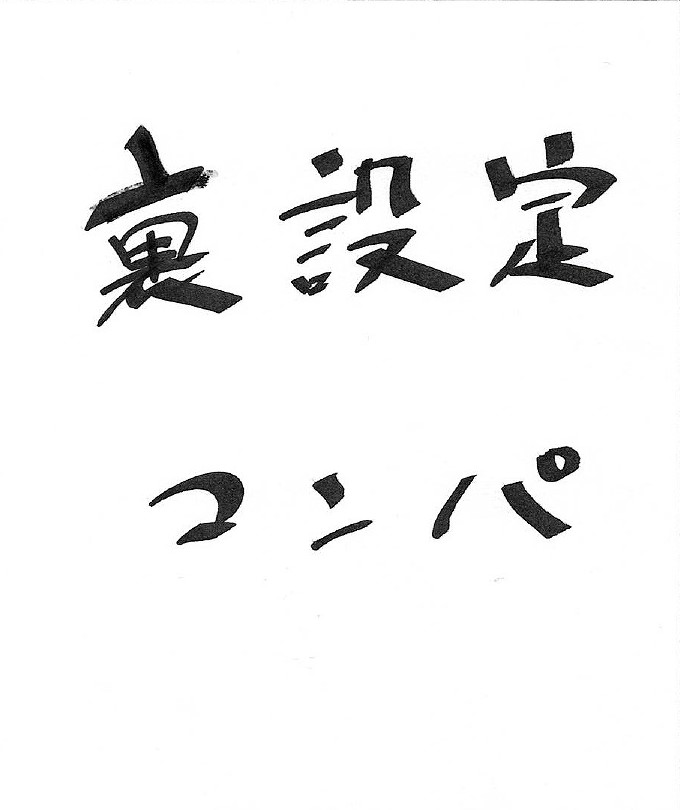 裏設定
コンパ